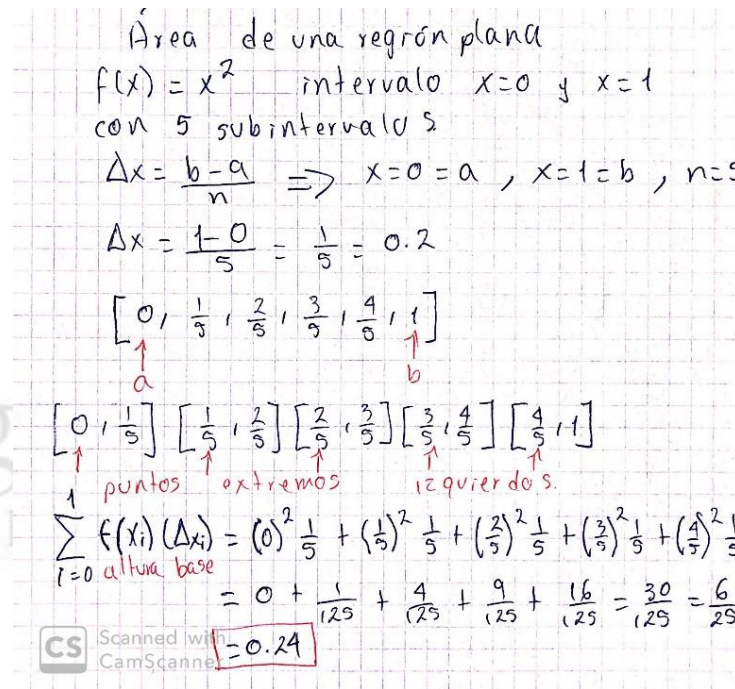 Área de una región plana
f(x) = x² intervalo x=0 y x=1
con 5 subintervalos
Δx = b-a/n => x=0=a, x=1=b, n=5
Δx = 1-0/5 = 1/5 = 0.2
[0, 1/5, 2/5, 3/5, 4/5, 1]
a b
[0, 1/5] [1/5, 2/5] [2/5, 3/5] [3/5, 4/5] [4/5, 1]
puntos extremos izquierdos.
1
∑ f(xi) (Δxi) = (0)² 1/5 + (1/5)² 1/5 + (2/5)² 1/5 + (3/5)² 1/5 + (4/5)² 1/5
i=0 altura base
= 0 + 1/125 + 4/125 + 9/125 + 16/125 = 30/125 = 6/25
=0.24
CS Scanned with
CamScanner